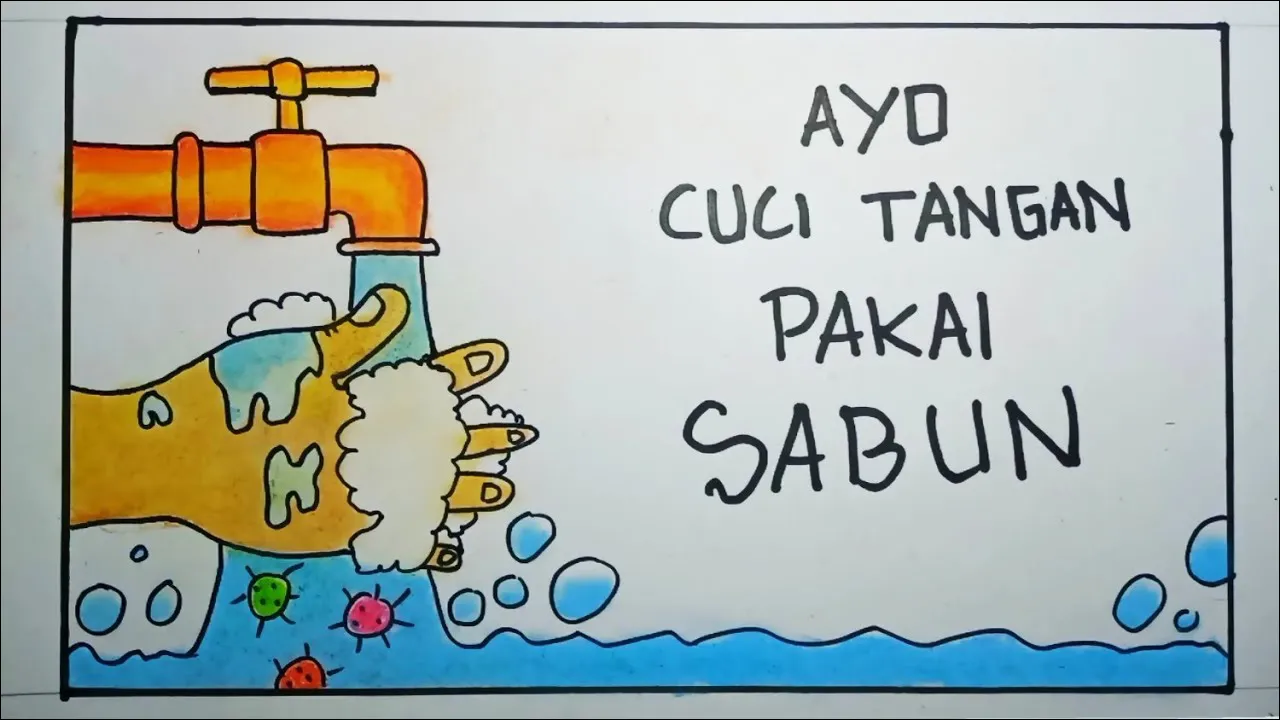 AYO
CUCI TANGAN
PAKAI
SABUN